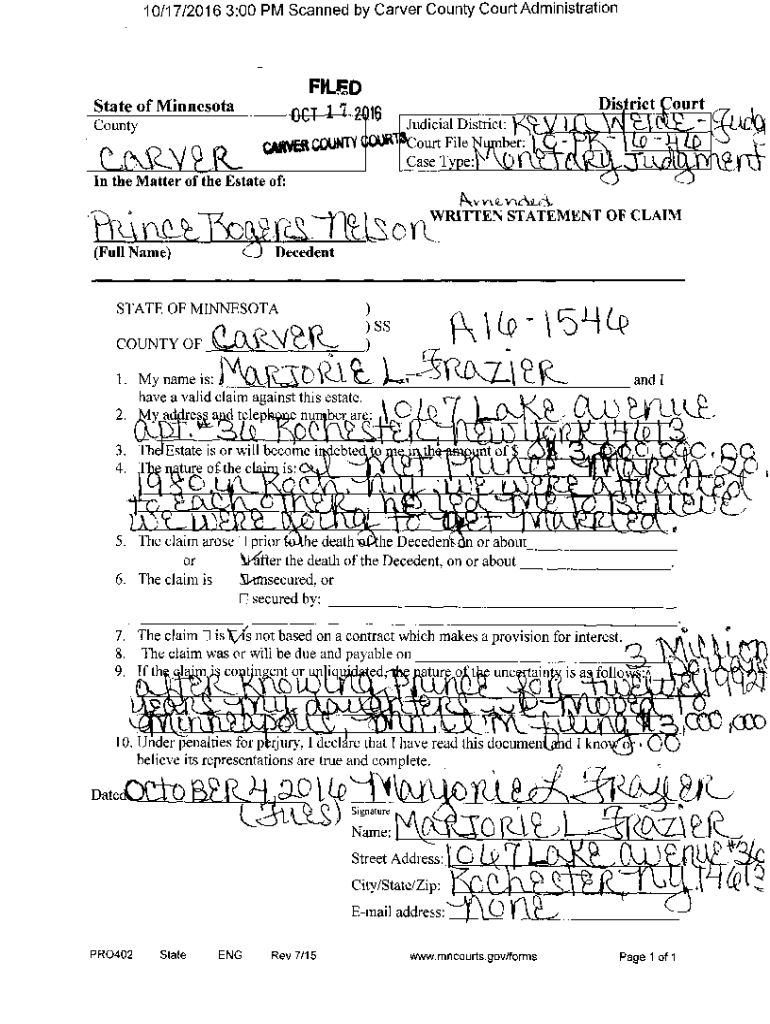 10/17/2016 3:00 PM Scanned by Carver County Court Administration
FILED
State of Minnesota OCT 17 2016 District Court
County CARVER COUNTY COURTS Judicial District: KEVIN WEIDE - Judg
CARVER Court File Number: 10-PR-16-46
Case Type: Monetary Judgment
In the Matter of the Estate of:
Amended
Prince Rogers Nelson WRITTEN STATEMENT OF CLAIM
(Full Name) Decedent
STATE OF MINNESOTA )
) SS A16-1546
COUNTY OF CARVER )
1. My name is: MARJORIE L. FRAZIER and I
have a valid claim against this estate.
2. My address and telephone number are: 1067 Lake avenue
apt. #36 Rochester, New York 14613
3. The Estate is or will become indebted to me in the amount of $ 3,000,000.00.
4. The nature of the claim is: I Met Prince March 20,
1980 in Roch. N.Y. we were attracted
to each other he led me to Believe
we were going to get Married.
5. The claim arose prior to the death of the Decedent on or about
or after the death of the Decedent, on or about
6. The claim is unsecured, or
secured by:
7. The claim is is not based on a contract which makes a provision for interest.
8. The claim was or will be due and payable on 3 Million
9. If the claim is contingent or unliquidated, the nature of the uncertainty is as follows: Dollars
after knowing Prince for twelve 1992
years my daughters moved to
Minneapolis, suing $3,000,000
10. Under penalties for perjury, I declare that I have read this document and I know or .00
believe its representations are true and complete.
Dated OCTOBER 4, 2016 Marjorie L Frazier
(Tues) Signature
Name: MARJORIE L FRAZIER
Street Address: 1067 LAKE avenue #36
City/State/Zip: Rochester NY. 14613
E-mail address: none
PRO402 State ENG Rev 7/15 www.mncourts.gov/forms Page 1 of 1